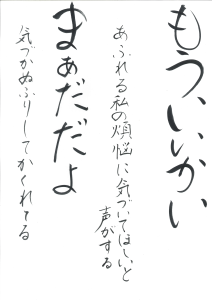 もういいかい
あふれる私の煩悩に気づいてほしいと
声がする
まぁだだよ
気づかぬふりしてかくれてる